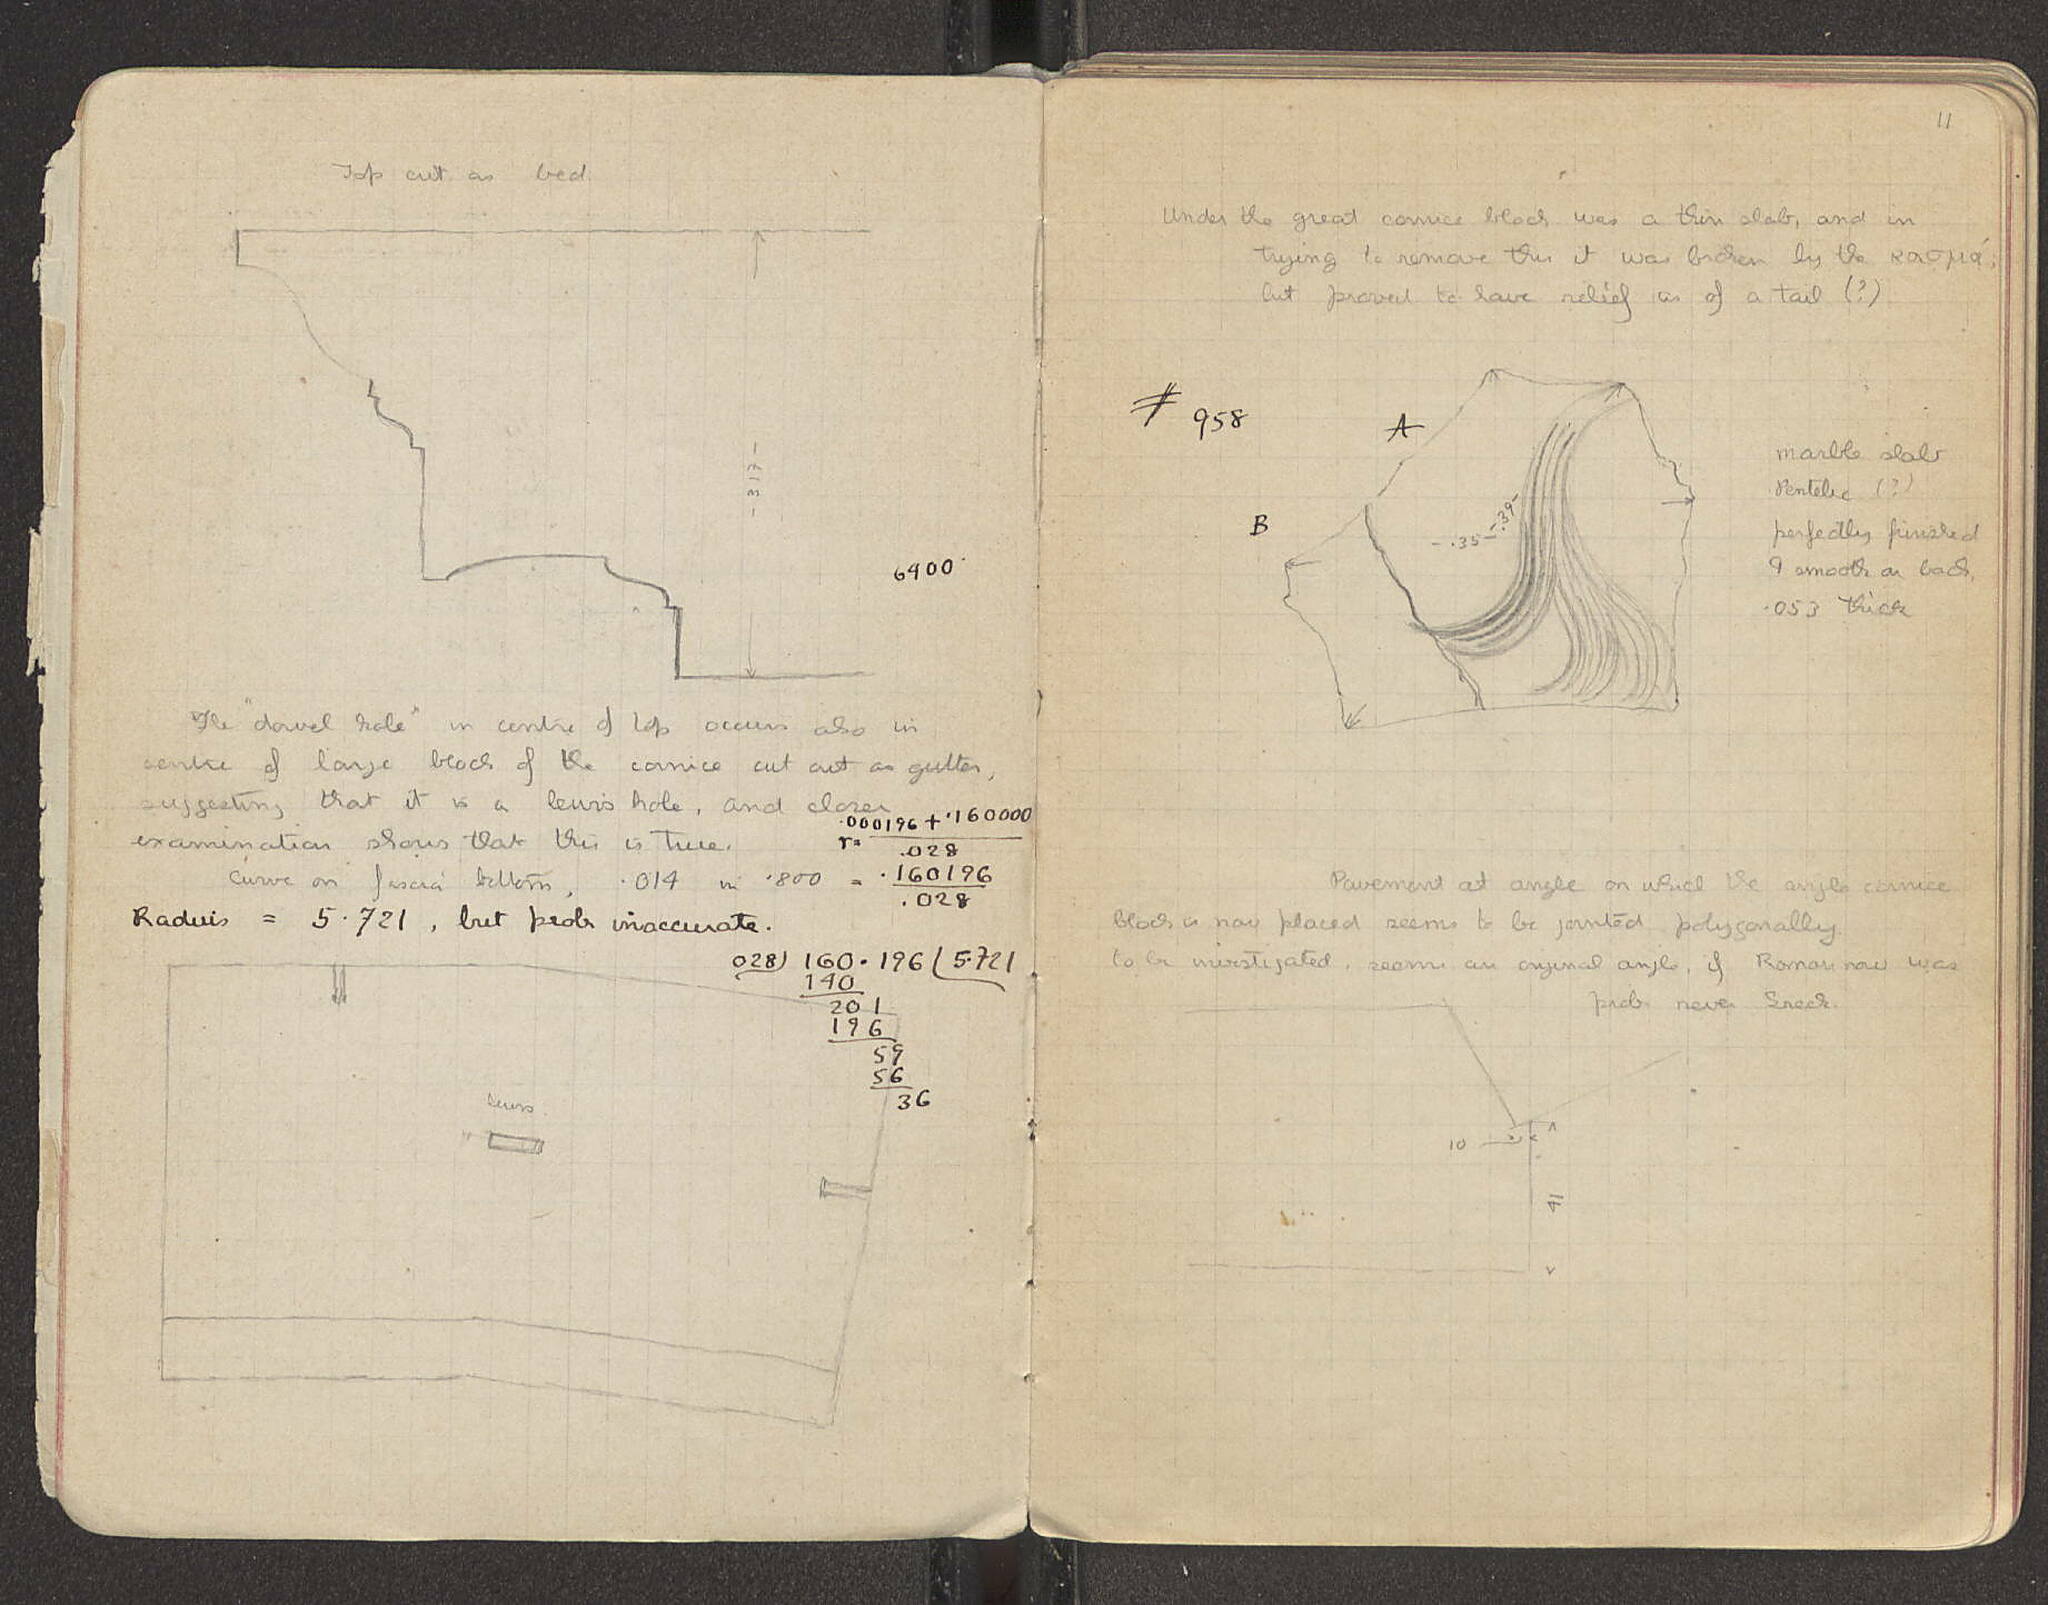 Top cut as bed
-.317-
6400
The "dowel hole" in centre of top occurs also in
centre of large block of the cornice cut out as gutter,
suggesting that it is a lewis hole, and closer
examination shows that this is true.
r= .000196 + .160000
.028
Curve on fascia bottom, .014 in .800 = .160196
.028
Radius = 5.721, but prob inaccurate.
028) 160.196 (5.721
140
201
196
59
56
36
lewis
11
Under the great cornice block was a thin slab, and in
trying to remove this it was broken by the κασμά,
but proved to have relief as of a tail (?)
# 958
A
B
-.35-
-.39-
marble slab
Pentelic (?)
perfectly finished
& smooth on back,
.053 thick
Pavement at angle on which the angle cornice
block is now placed seems to be jointed polygonally
to be investigated, seems an original angle, if Roman now was
prob never Greek.
10
41